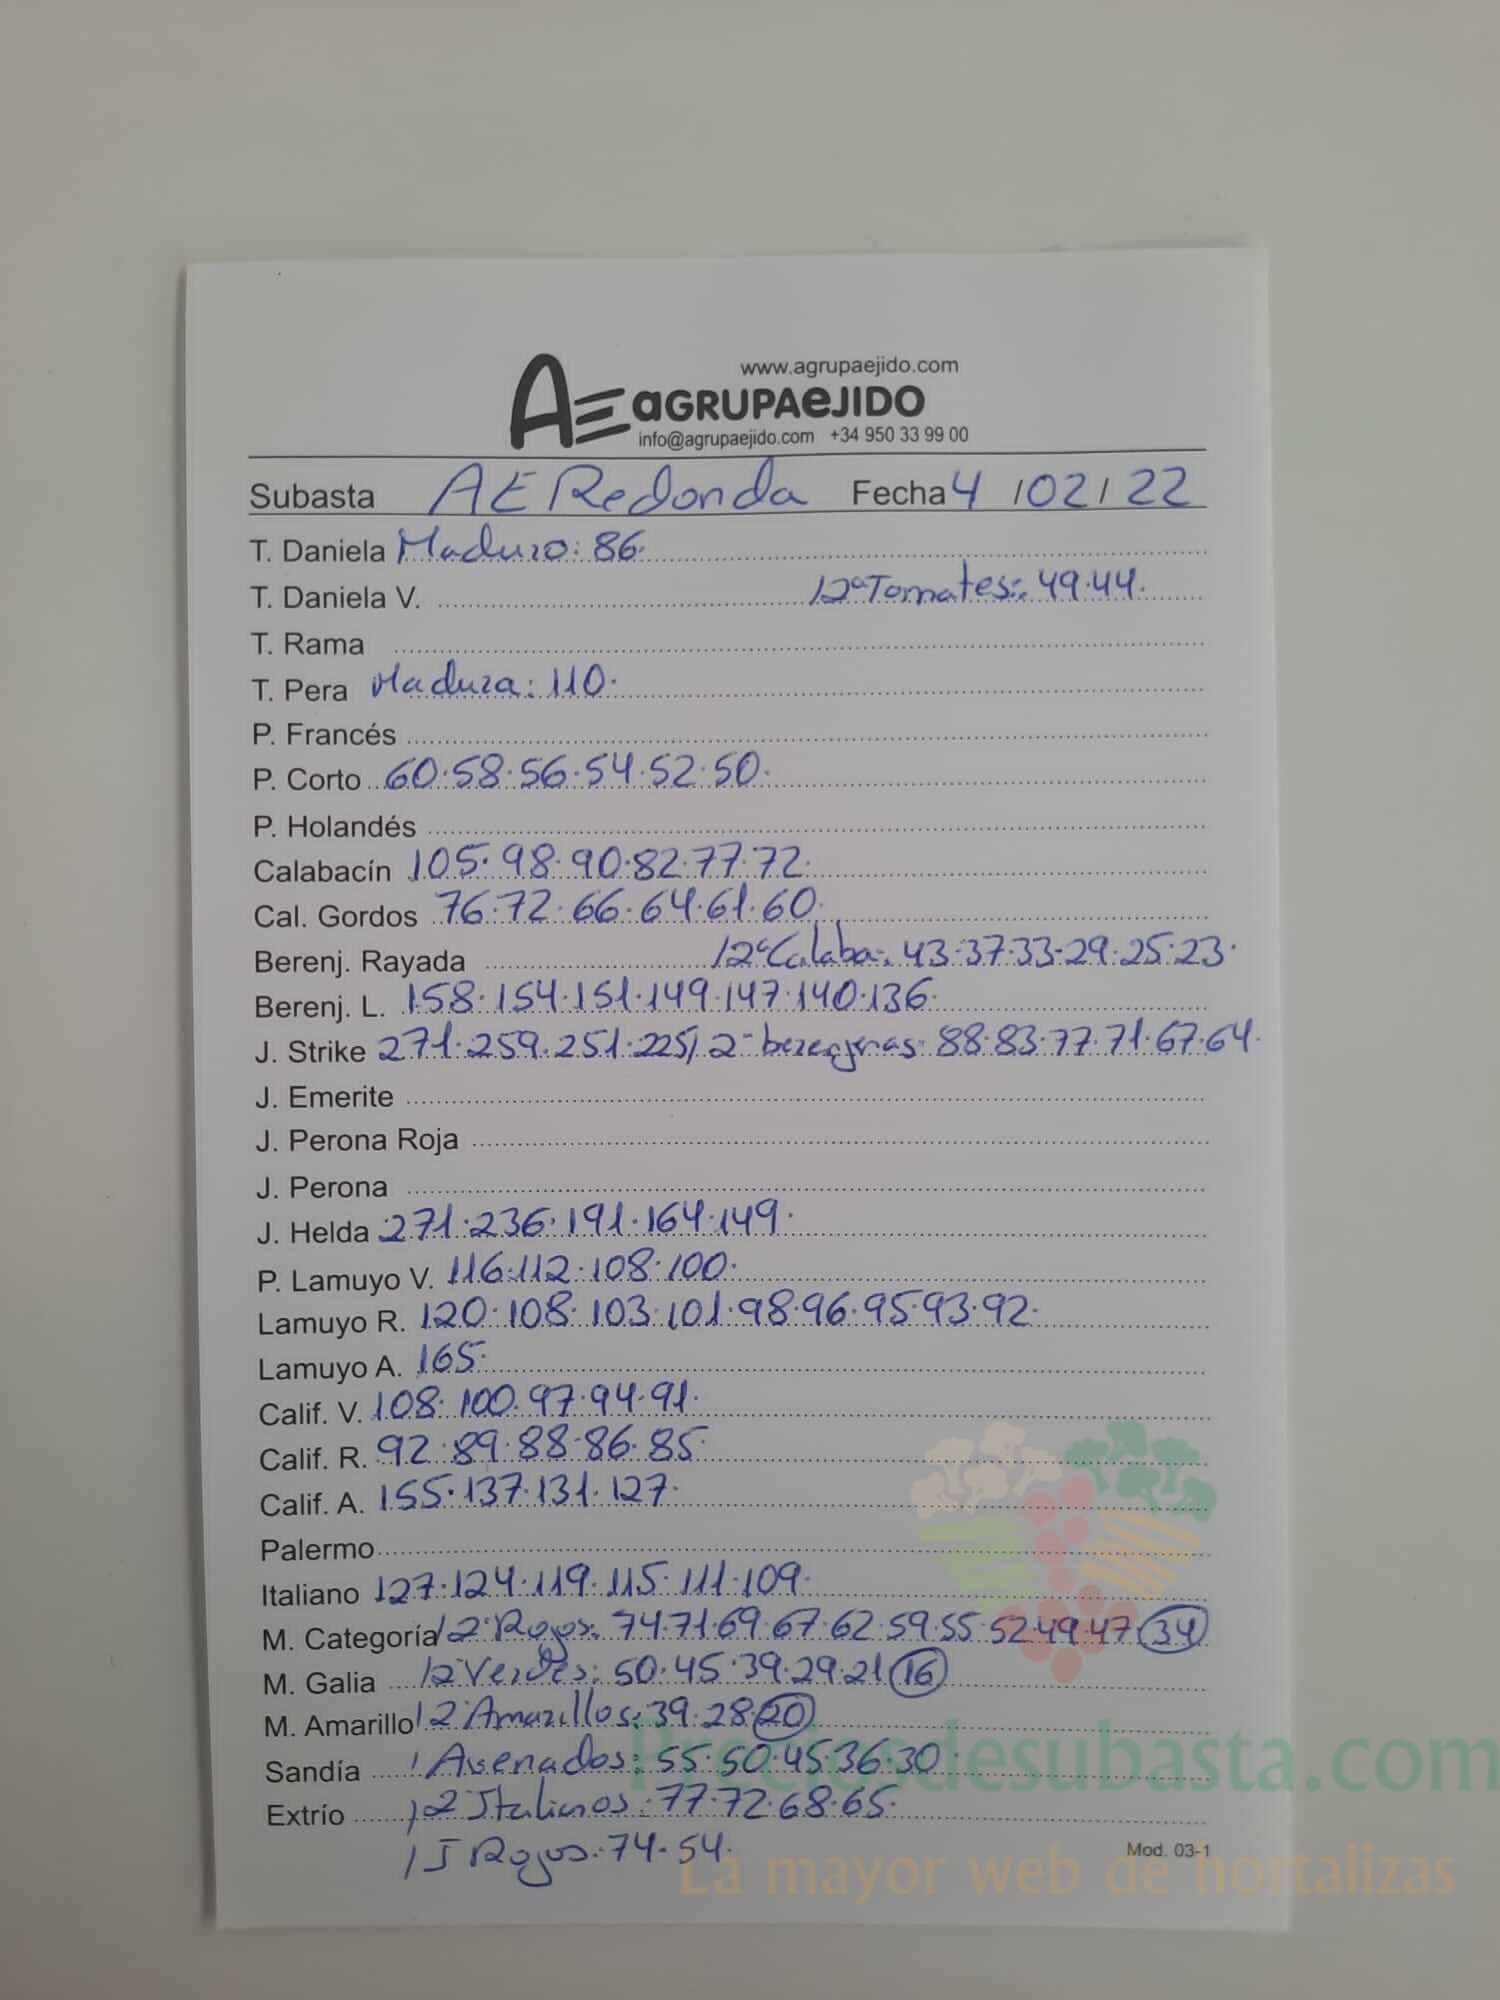 www.agrupaejido.com
AE AGRUPAEJIDO
info@agrupaejido.com +34 950 33 99 00
Subasta AE Redonda Fecha 4 / 02 / 22
T. Daniela Maduro: 86.
T. Daniela V. /2ª Tomates: 49.44.
T. Rama
T. Pera Madura: 110.
P. Francés
P. Corto 60.58.56.54.52.50.
P. Holandés
Calabacín 105.98.90.82.77.72.
Cal. Gordos 76.72.66.64.61.60.
Berenj. Rayada /2ª Calaba: 43.37.33.29.25.23.
Berenj. L. 158.154.151.149.147.140.136.
J. Strike 271.259.251.225/ 2ª berenjenas: 88.83.77.71.67.64.
J. Emerite
J. Perona Roja
J. Perona
J. Helda 271.236.191.164.149.
P. Lamuyo V. 116.112.108.100.
Lamuyo R. 120.108.103.101.98.96.95.93.92.
Lamuyo A. 165.
Calif. V. 108.100.97.94.91.
Calif. R. 92.89.88.86.85.
Calif. A. 155.137.131.127.
Palermo
Italiano 127.124.119.115.111.109.
M. Categoría /2ª Rojos: 74.71.69.67.62.59.55.52.49.47.34
M. Galia /2 Verdes: 50.45.39.29.21 16
M. Amarillo /2 Amarillos: 39.28.20
Sandía / Asenados: 55.50.45.36.30.
Extrío /2 Italianos: 77.72.68.65.
/J Rojos: 74.54.
Mod. 03-1
Preciosdesubasta.com
La mayor web de hortalizas